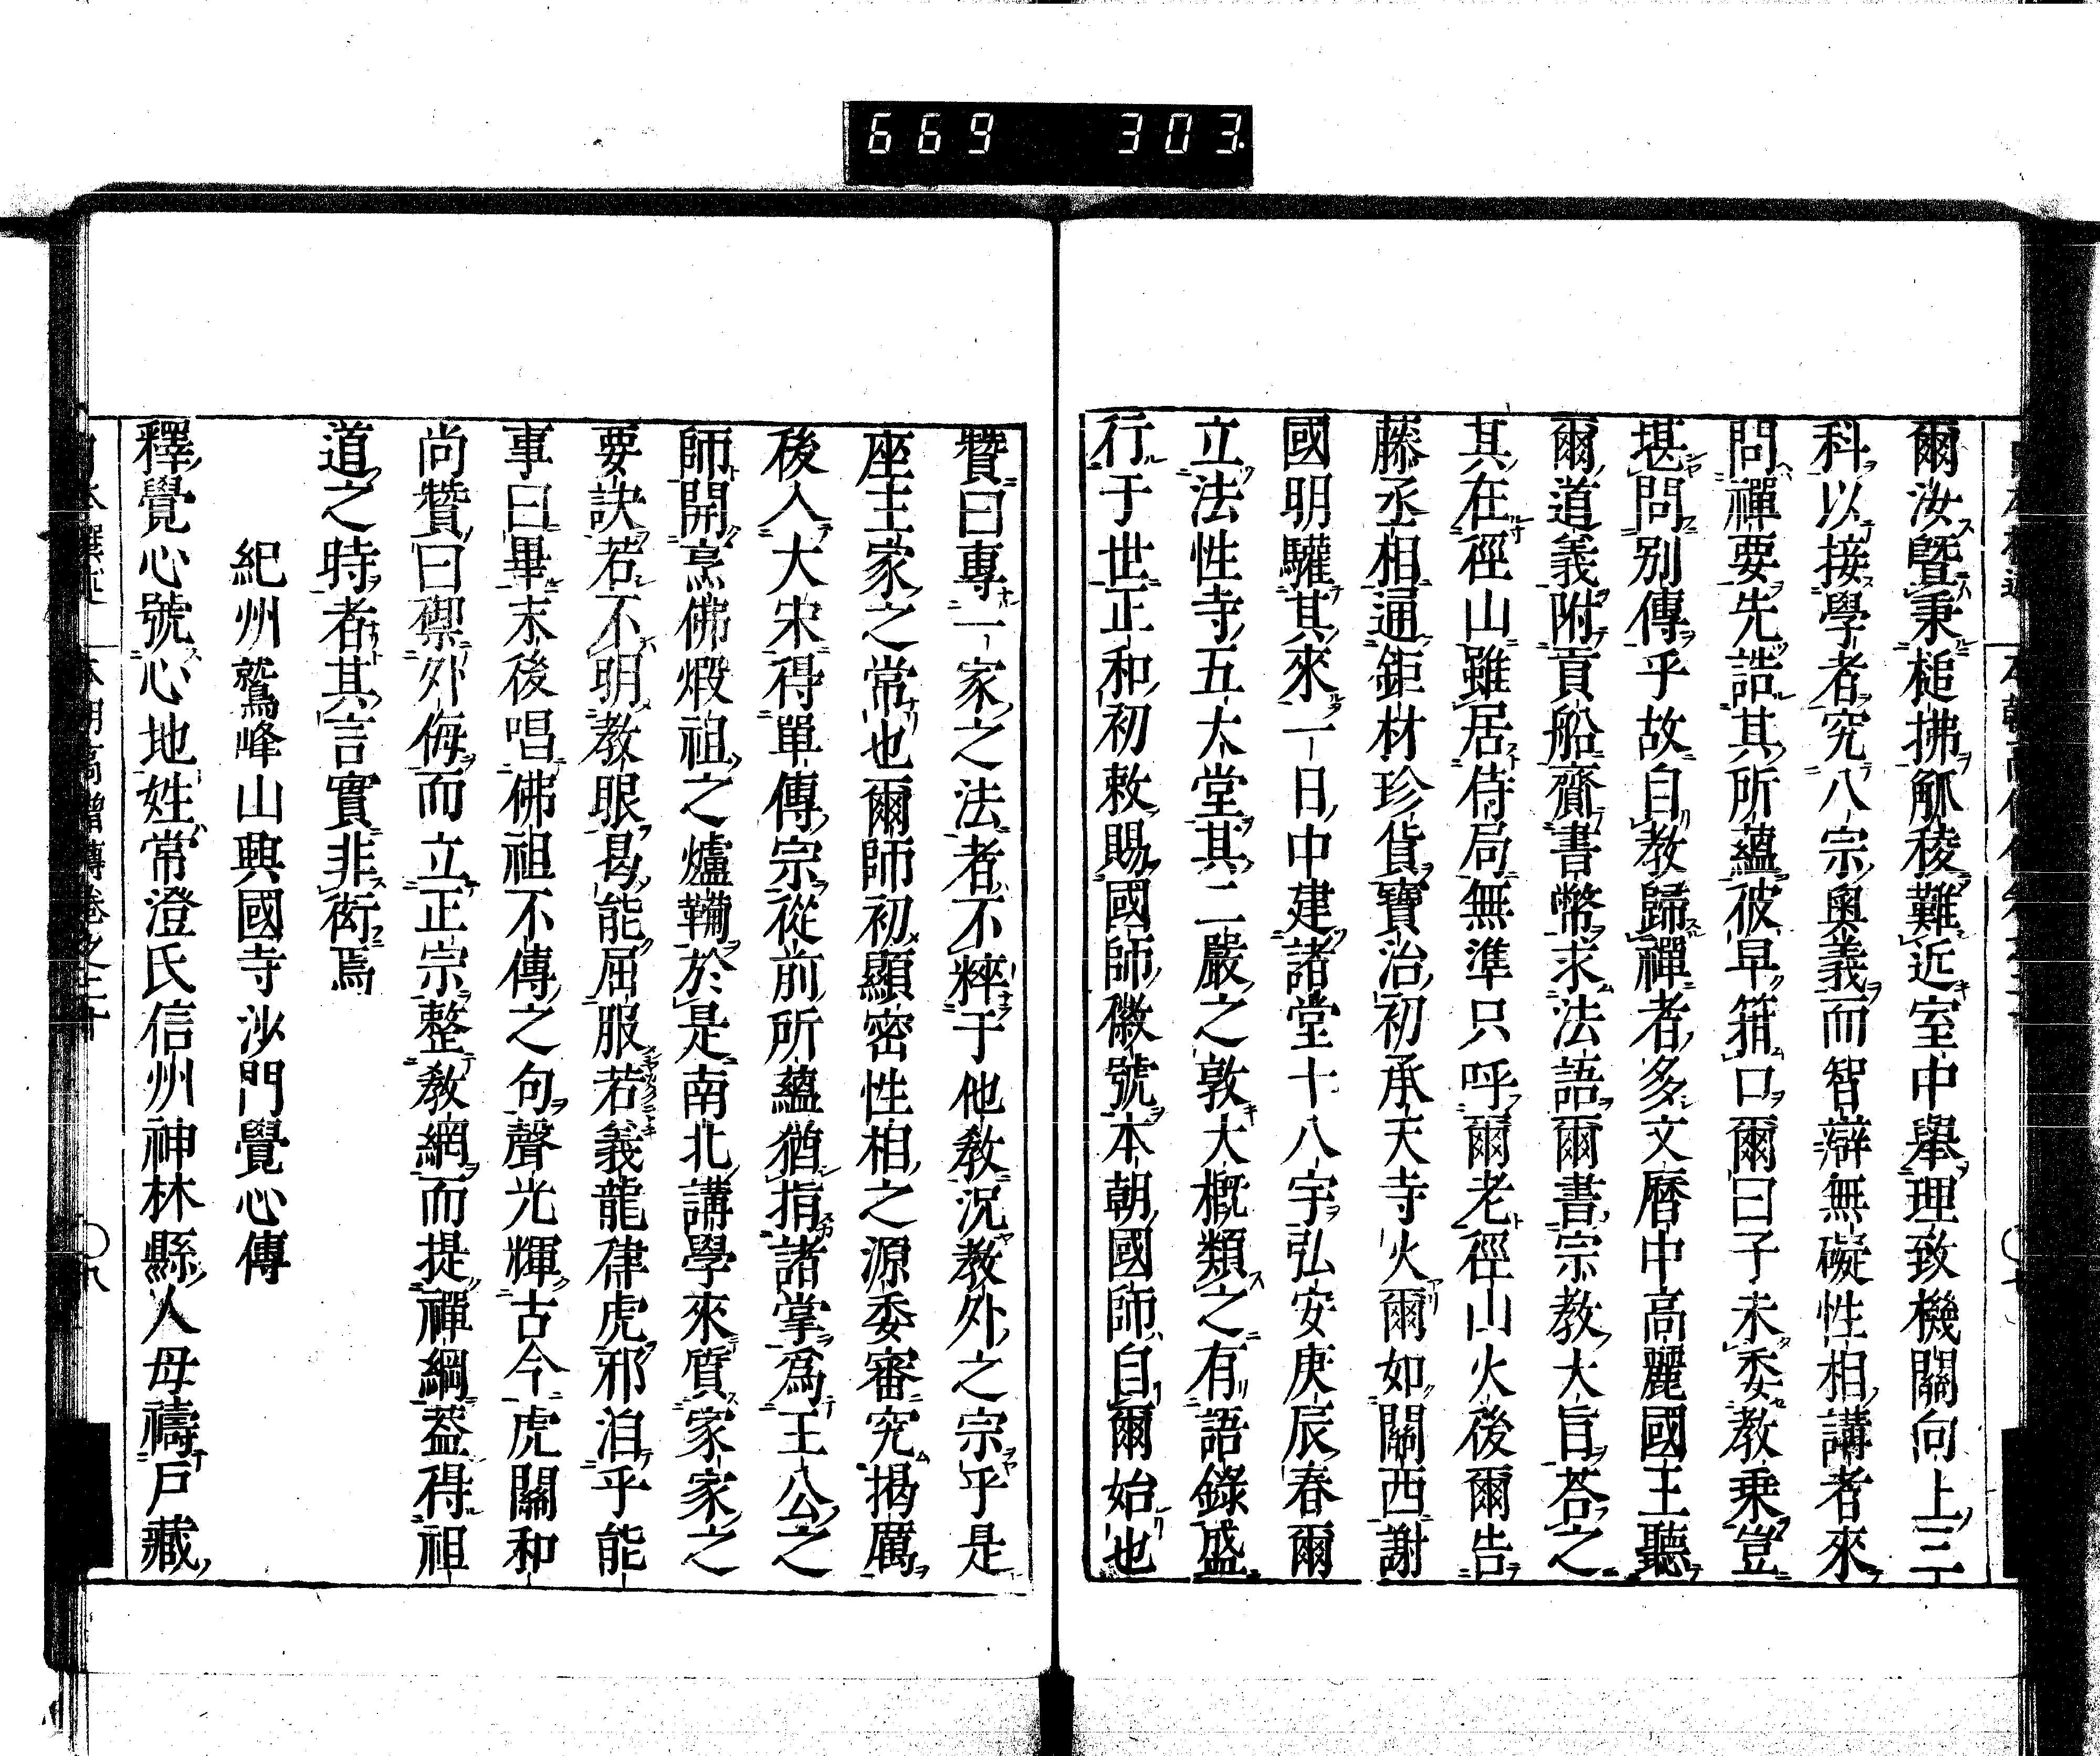 669 303
爾汝暨秉槌拂觚稜難近室中舉理致機關向上三
科以接學者究八宗奧義而智辯無礙性相講者來
問禪要先詰其所蘊彼早箝口爾曰子未委教乗豈
堪問別傳乎故自教歸禪者多文曆中高麗國王聽
爾道義附貢船齎書幣求法語爾書宗教大旨荅之
其在徑山雖居侍局無準只呼爾老徑山火後爾告
藤丞相通鉅材珍貨寶治初承天寺火爾如關西謝
國明驩其來一日中建諸堂十八宇弘安庚辰春爾
立法性寺五大堂其二嚴之敦大概類之有語錄盛
行于世正和初敕賜國師徽號本朝國師自爾始也
贊曰專一家之法者不粹于他教況教外之宗乎是
座主家之常也爾師初顯密性相之源委審究揭厲
後入大宋得單傳宗從前所蘊猶指諸掌為王公之
師開烹佛煅祖之爐鞴於是南北講學來質家家之
要訣若不明教眼曷能屈服若義龍律虎邪洎乎能
事曰畢末後唱佛祖不傳之句聲光輝古今虎關和
尚贊曰禦外侮而立正宗整教網而提禪綱蓋得祖
道之時者其言實非衒焉
紀州鷲峰山興國寺沙門覺心傳
釋覺心號心地姓常澄氏信州神林縣人母禱戶藏